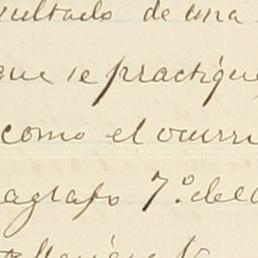 sultado de una
que se practique
como el ocurri
agrafo 7.º del